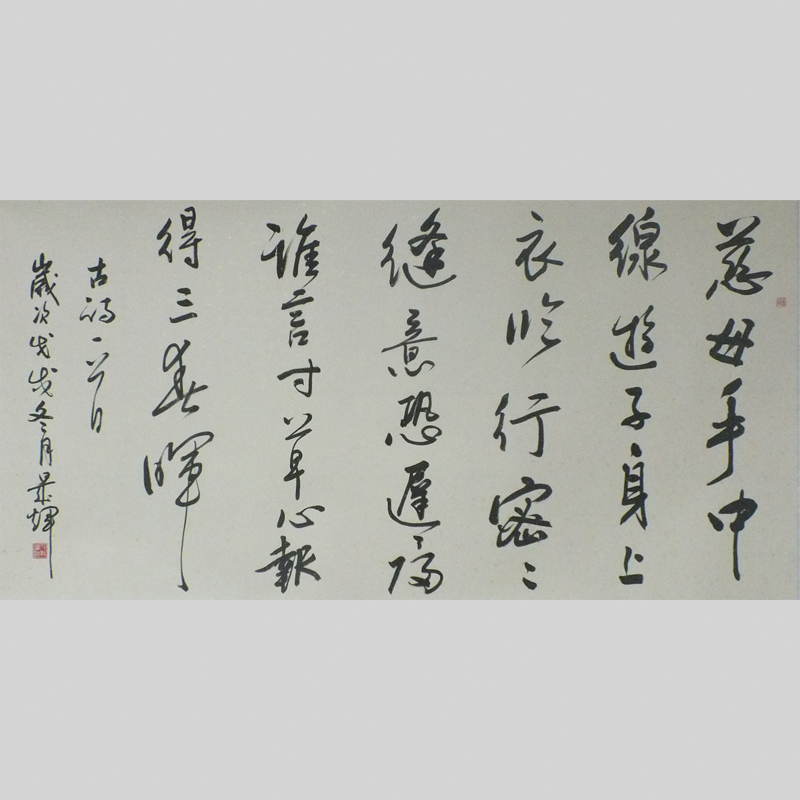 慈母手中
線遊子身上
衣臨行密〻
縫意恐遲〻歸
誰言寸草心報
得三春暉
古詩一首
歲次戊戌冬月景輝